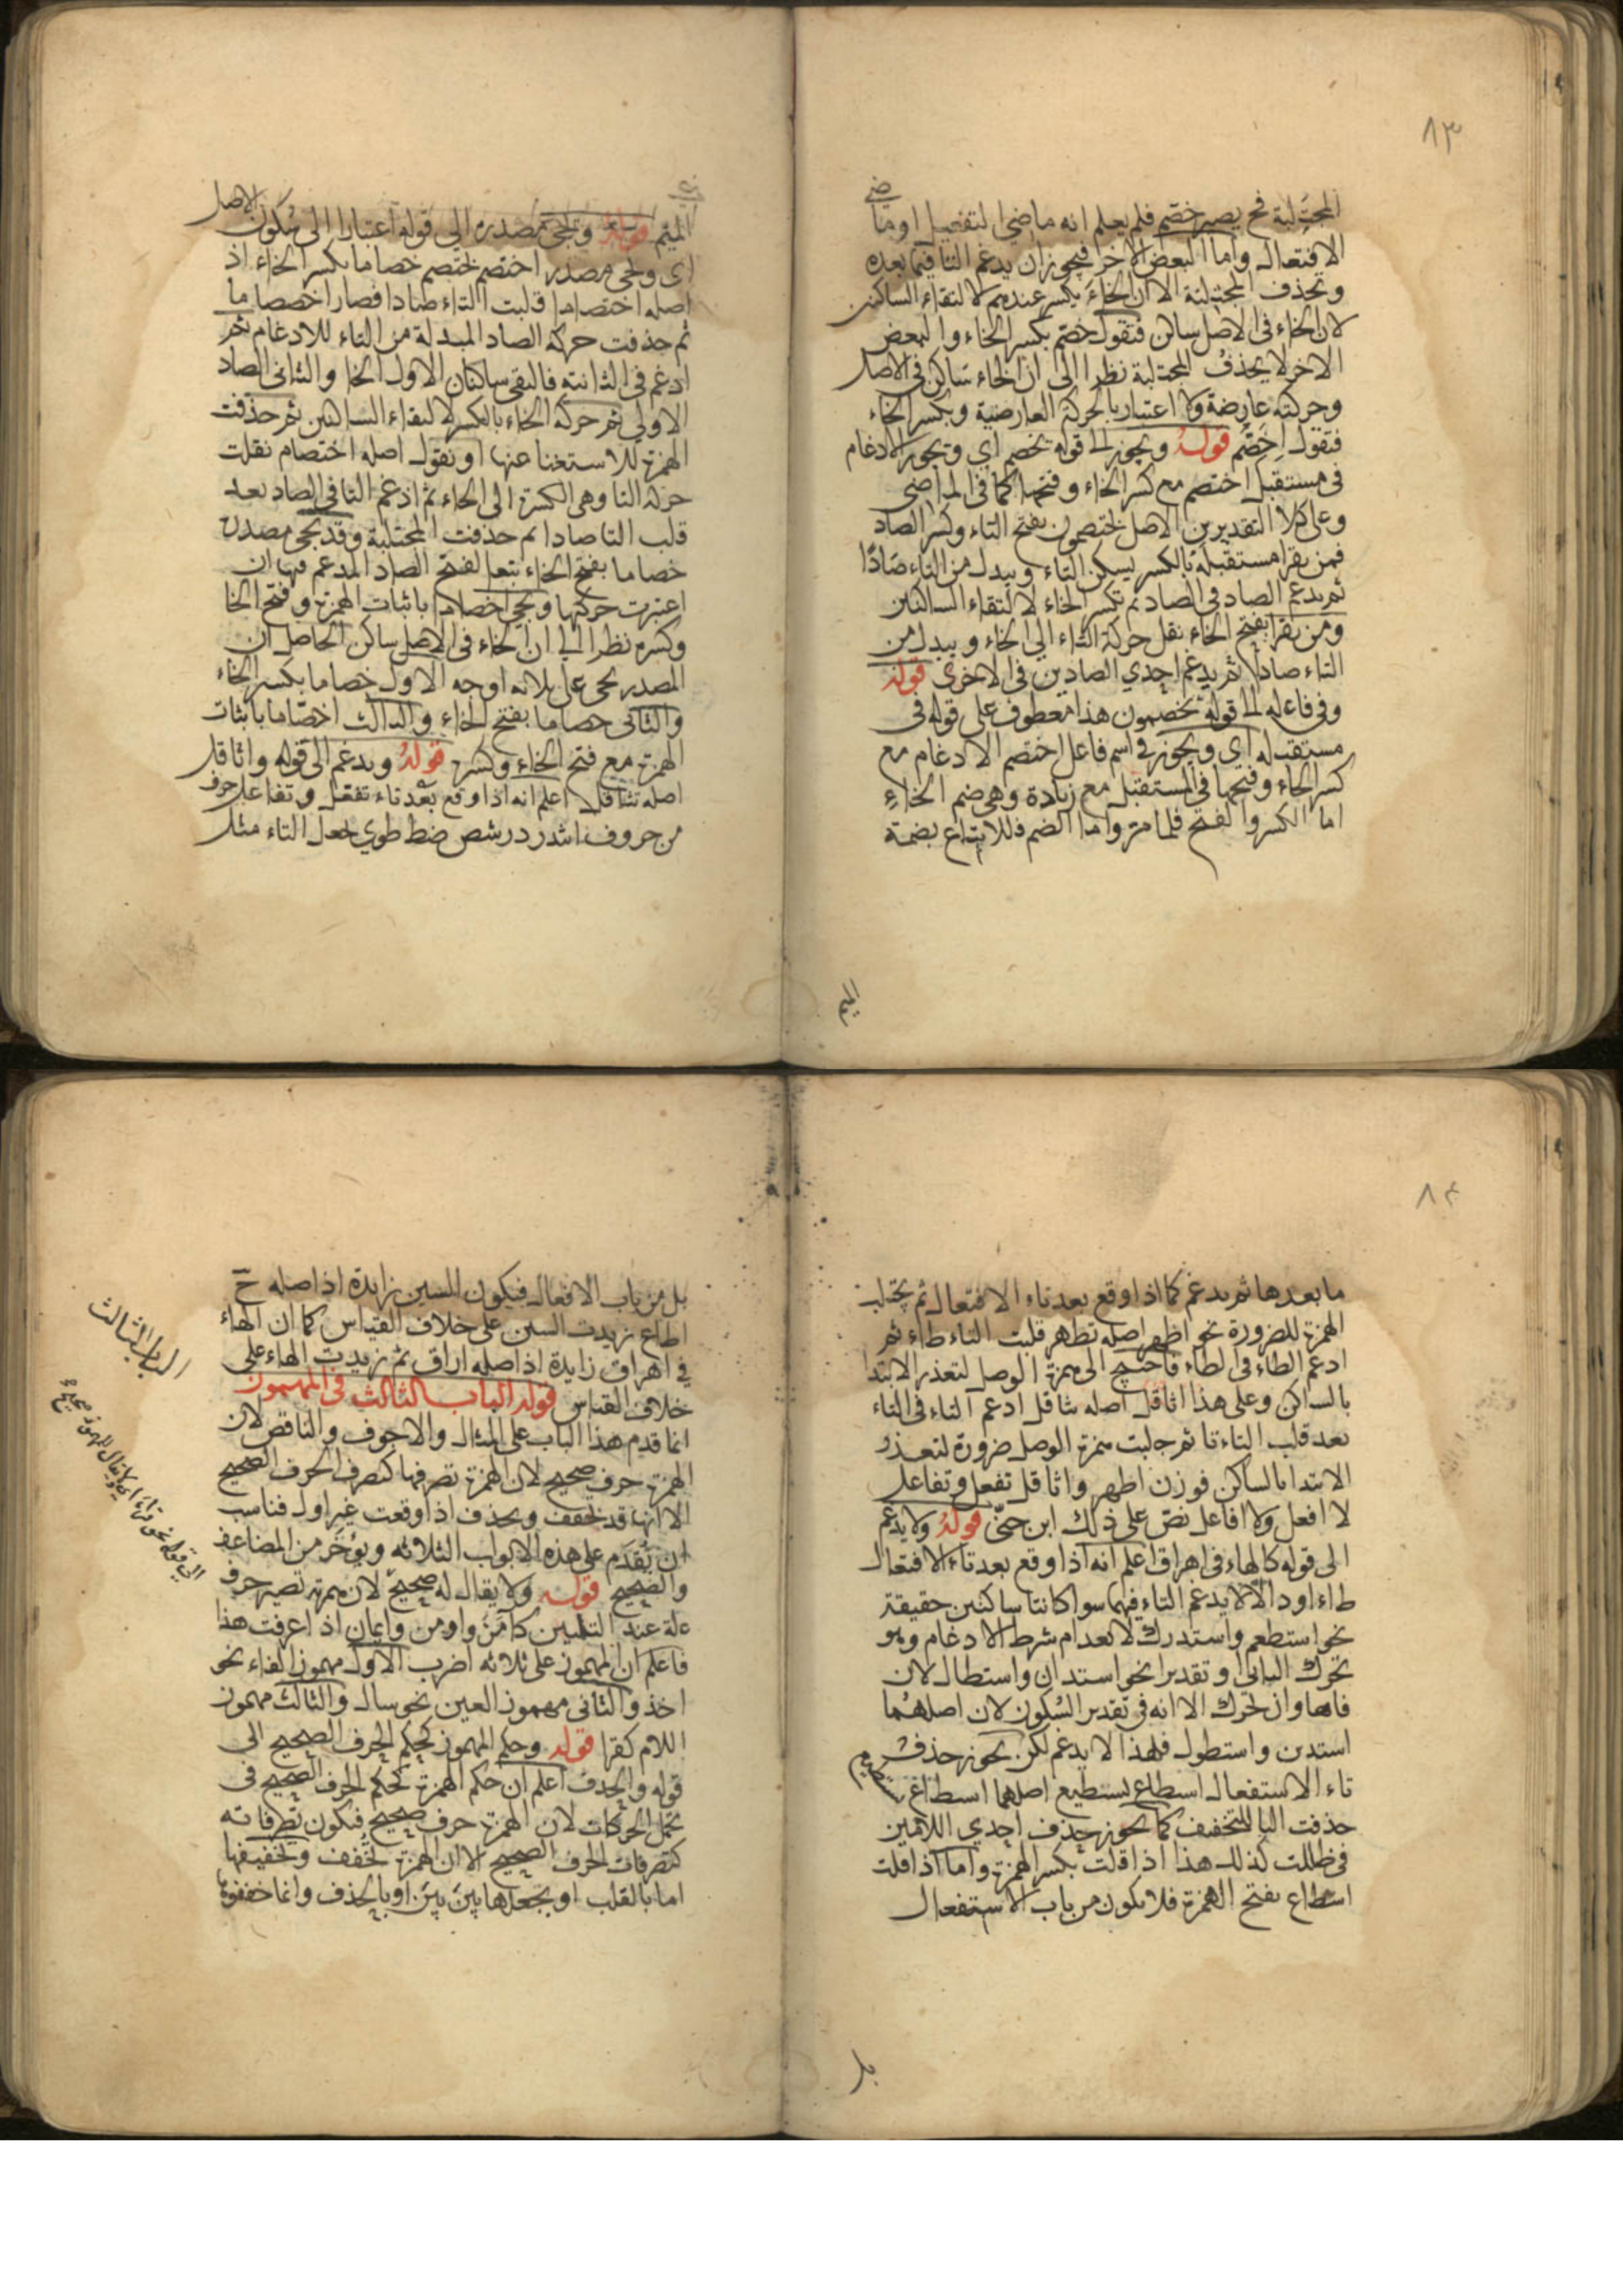 ٨٣
المجتلبة فح يصير خصم فلم يعلم انه ماضي التفعيل او ماضي
الافتعال واما البعض الاخر فيجوز ان يدغم التا فيما بعده
وتحذف المجتلبة الا ان الخاء يكسر عندهم لالتقاء الساكنين
لان الخاء فى الاصل ساكن فتقول خصم بكسر الخاء والبعض
الاخر لا يحذف المجتلبة نظرا الى ان الخاء ساكن فى الاصل
وحركته عارضة ولا اعتبار بالحركة العارضية وبكسر الخاء
فتقول اخصم قوله ويجوز الى قوله يخصم اي ويجوز الادغام
فى مستقبل اختصم مع كسر الخاء وفتحها كما فى الماضى
وعلى كلا التقديرين الاصل يختصمون بفتح التاء وكسر الصاد
فمن يقرا مستقبله بالكسر يسكن التاء ويبدل من التاء صادًا
ثم يدغم الصاد فى الصاد ثم تكسر الخاء لالتقاء الساكنين
ومن يقرا بفتح الخاء نقل حركة التاء الى الخاء ويبدل من
التاء صادا ثم يدغم احدي الصادين فى الاخرى قوله
وفى فاعله الى قوله مخصمون هذا معطوف على قوله فى
مستقبله اي ويجوز فى اسم فاعل اختصم الادغام مع
كسر الخاء وفتحها فى المستقبل مع زيادة وهى ضم الخاء
اما الكسر والفتح فلما مر واما الضم فللاتباع بضمة
الميم قوله ويجئ مصدره الى قوله اعتبارا الى سكون الاصل
اى ويجى مصدر اختصم يختصم خصاما بكسر الخاء اذ
اصله اختصاما قلبت التاء صادا فصار اخصصاما
ثم حذفت حركة الصاد المبدلة من التاء للادغام ثم
ادغم فى الثانية فالتقى ساكنان الاول الخا والثانى الصاد
الاولى ثم حركة الخاء بالكسر لالتقاء الساكنين ثم حذفت
الهمزة للاستغنا عنها او نقول اصله اختصام نقلت
حركة التا وهى الكسرة الى الخاء ثم ادغم التا فى الصاد بعد
قلب التا صادا ثم حذفت المجتلبة وقد يجى مصدره
خصاما بفتح الخاء تبعا لفتح الصاد المدغم فيها ان
اعتبرت حركتها ويجى اخصاما باثبات الهمزة وفتح الخا
وكسره نظرا الى ان الخاء فى الاصل ساكن الحاصل ان
المصدر يجى على ثلاثه اوجه الاول خصاما بكسر الخاء
والثانى خصاما بفتح الخاء والثالث اخصّاما باثبات
الهمزة مع فتح الخاء وكسره قوله ويدغم الى قوله واثاقل
اصله تثاقل اعلم انه اذا وقع بعد تاء تفعل وتفاعل حرف
من حروف اتثدذر سشص ضطظوي جعل التاء مثل
٨٤
ما بعدها ثم يدغم كما اذا وقع بعد تاء الافتعال ثم يجتلب
الهمزة للضرورة نحو اظهر اصله تظهر قلبت التاء طاء ثم
ادغم الطاء فى الطاء فاحتيج الى همزة الوصل لتعذر الابتدا
بالساكن وعلى هذا اثاقل اصله تثاقل ادغم التاء فى الثاء
بعد قلب التاء ثا ثم جلبت همزة الوصل ضرورة لتعذر
الابتدا بالساكن فوزن اطهر واثاقل تفعل وتفاعل
لا افعل ولا افاعل نصّ على ذلك ابن جنّى قوله ولا يدغم
الى قوله كالهاء فى اهراق اعلم انه اذا وقع بعد تاء الافتعال
طاء او دالا لا يدغم التاء فيهما سوا كانتا ساكنين حقيقة
نحو استطعم واستدرك لانعدام شرط الادغام وهو
تحرك الثانى او تقديرا نحو استدان واستطال لان
فاءها وان تحرك الا انه فى تقدير السُكون لان اصلهما
استدين واستطول فلهذا لا يدغم لكن يجوز حذف
تاء الاستفعال اسطاع يسطيع اصلهما استطاع يستطيع
حذفت التا للتخفيف كما يجوز حذف احدي اللامين
فى ظللت كذلك هذا اذا قلت بكسر الهمزة واما اذا قلت
اسطاع بفتح الهمزة فلا يكون من باب الاستفعال
بل
بل من باب الافعال فيكون السين زايدة اذ اصله ح
اطاع زيدت السين على خلاف القياس كما ان الهاء
في اهراق زايدة اذ اصله اراق ثم زيدت الهاء على
خلاف القياس قوله الباب الثالث فى المهموز
انما قدم هذا الباب على المثال والاجوف والناقص لان
الهمزة حرف صحيح لان الهمزة تصرفها كتصرف الحرف الصحيح
الا انها قد تخفف ويحذف اذا وقعت غير اول فناسب
ان يُقدَم على هذه الابواب الثلاثه ويؤخَر من المضاعف
والصحيح قوله ولا يقال له صحيحٌ لان همزته تصير حرف
علة عند التليين كامَنَ واومن وايمان اذا عرفت هذا
فاعلم ان المهموز على ثلاثه اضرب الاول مهموز الفاء نحو
اخذ والثانى مهموز العين نحو سال والثالث مهموز
اللام كقرا قوله وحكم المهموز كحكم الحرف الصحيح الى
قوله والحذف اعلم ان حكم الهمزة كحكم الحرف الصحيح فى
تحمل الحركات لان الهمزة حرف صحيح فيكون تصرفاته
كتصرفات الحرف الصحيح الا ان الهمزة تخفف وتخفيفها
اما بالقلب او بجعلها بَينَ بَينَ او بالحذف وانما خففوه
الباب الثالث
الى قوله نحو قراء اى ولا يقال للمهموز صحيح